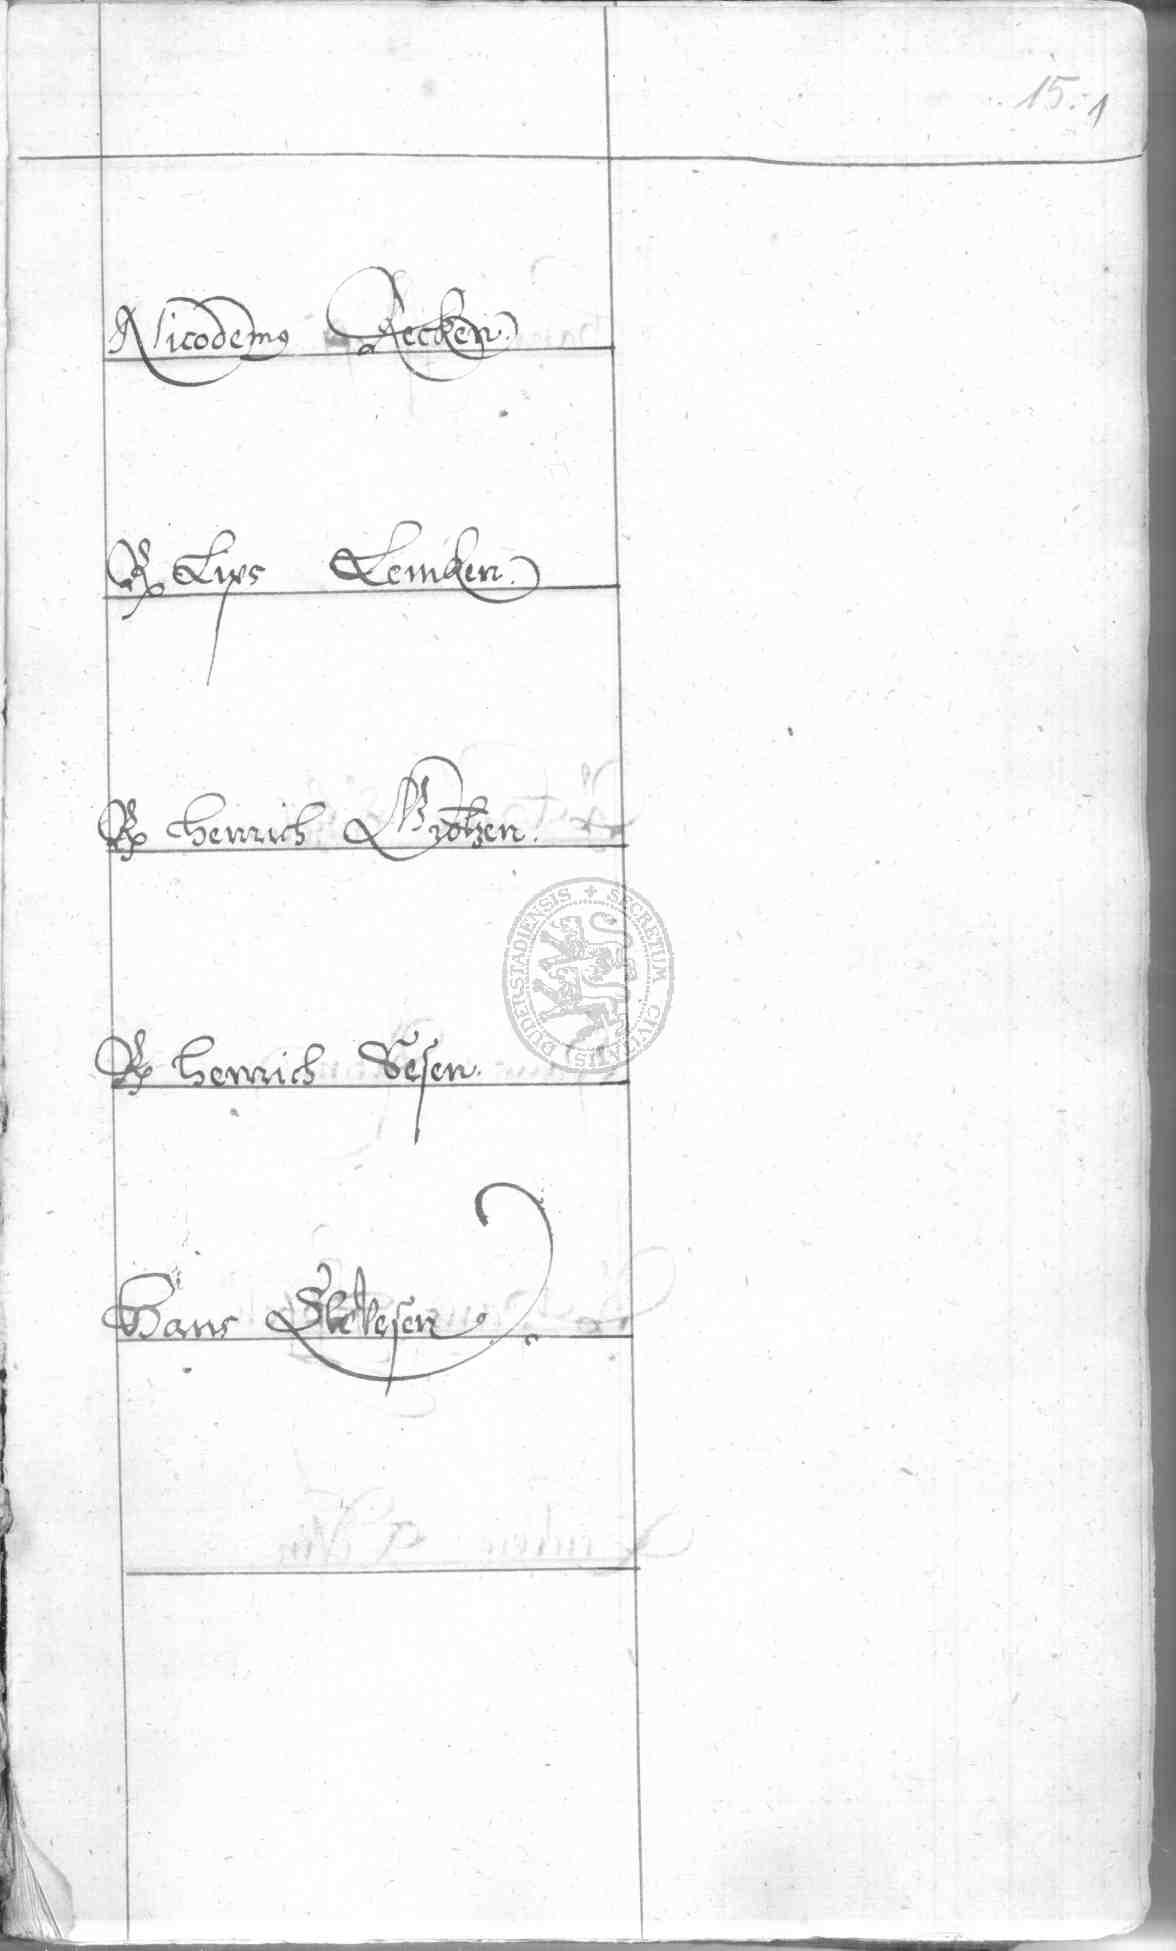 15. 1
Nicodemus Recken.
R Lips Lemcken.
R Henrich
R Henrich Sesen.
Hans
SECRETUM CIVITATIS DUDERSTADIENSIS